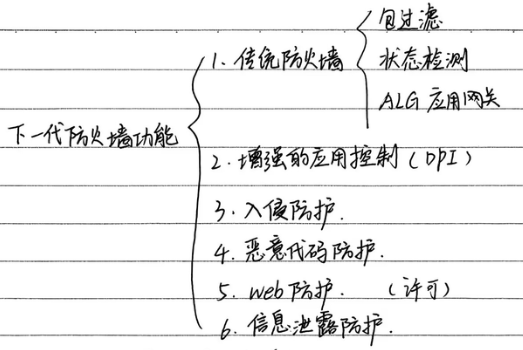 包过滤
1. 传统防火墙
状态检测
ALG 应用网关
下一代防火墙功能
2. 增强的应用控制（DPI）
3. 入侵防护.
4. 恶意代码防护.
5. web防护. （许可）
6. 信息泄露防护.